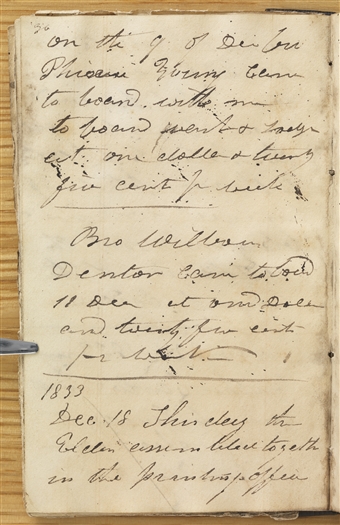 56
on the 9 of December
Phineas Young Came
to board with me
to board went & lodge
at one dollar & twenty
five cent pr week
Bro William
Denton Came to board
11 Dec at one Doler
and twenty five cent
pr week
1833
Dec 18 This day the
Elders assembled togeth
in the printing office